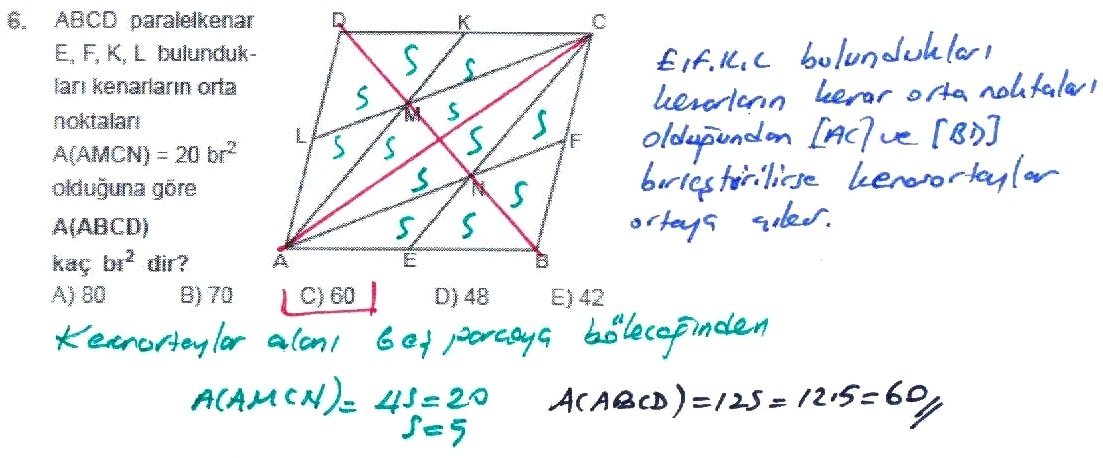 6. ABCD paralelkenar
E, F, K, L bulunduk-
ları kenarların orta
noktaları
A(AMCN) = 20 br²
olduğuna göre
A(ABCD)
kaç br² dir?
A) 80 B) 70 C) 60 D) 48 E) 42
D K C
S S
S S
L M S S F
S S
S N S
S S
A E B
E,F,K,L bulundukları
kenarların kenar orta noktaları
olduğundan [AC] ve [BD]
birleştirilirse kenarortaylar
ortaya çıkar.
Kenarortaylar alanı eşit parçaya böleceğinden
A(AMCN) = 4S = 20 A(ABCD) = 12S = 12.5 = 60//
S = 5